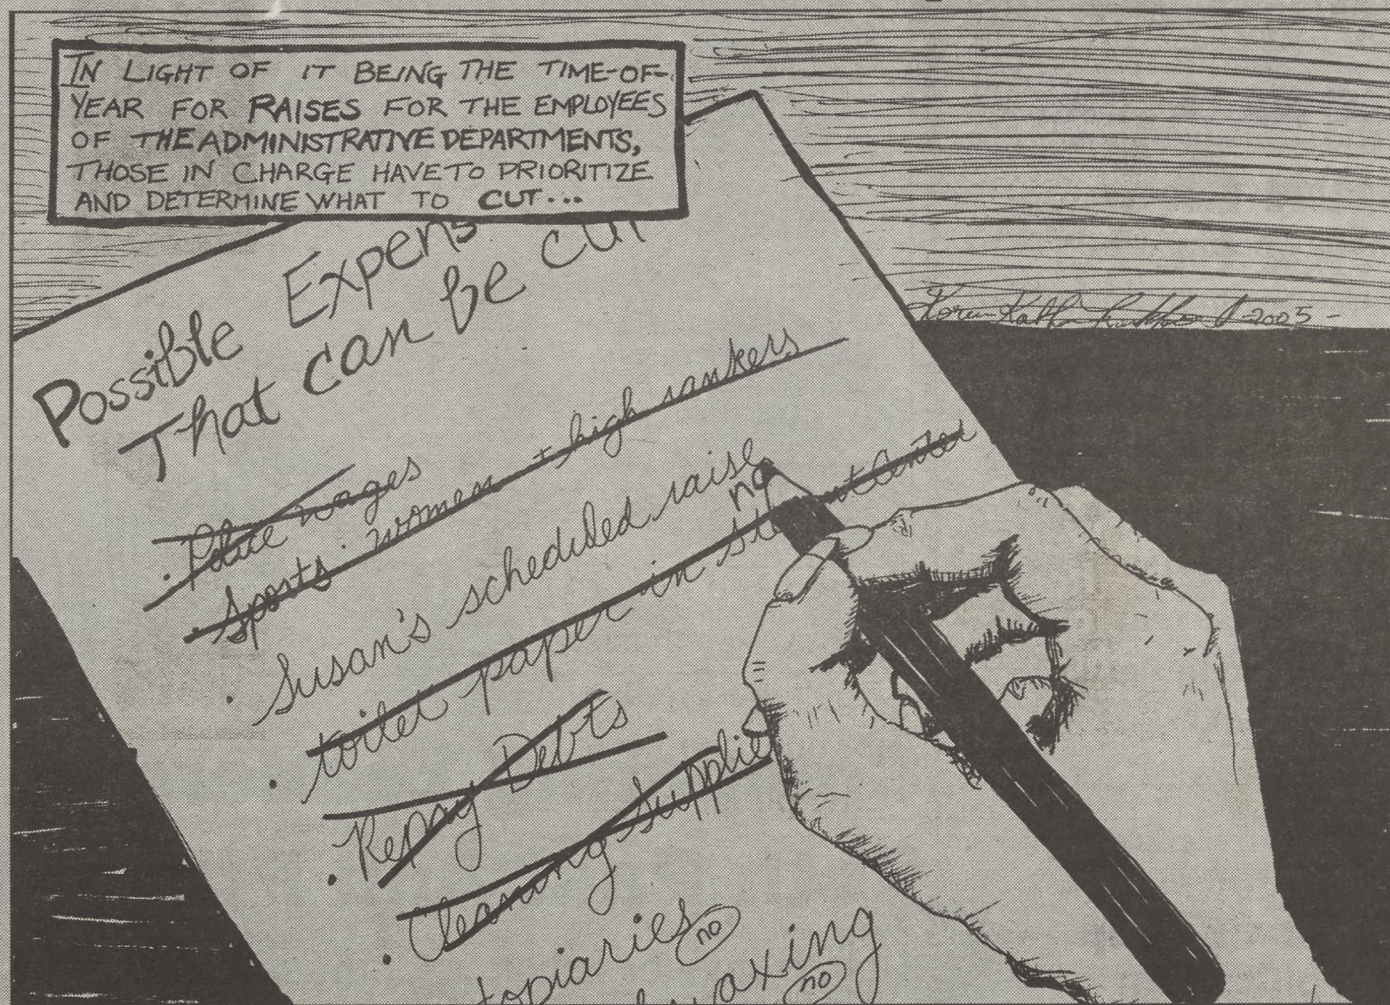 IN LIGHT OF IT BEING THE TIME-OF-
YEAR FOR RAISES FOR THE EMPLOYEES
OF THE ADMINISTRATIVE DEPARTMENTS,
THOSE IN CHARGE HAVE TO PRIORITIZE
AND DETERMINE WHAT TO CUT...
Possible Expens
That can be cut
· Police wages
· Sports · women + high rankers
· Susan's scheduled raise no
· toilet paper in st nt Center
· Repay Debts
· Cleaning Supplie
topiaries no
axing no
2005